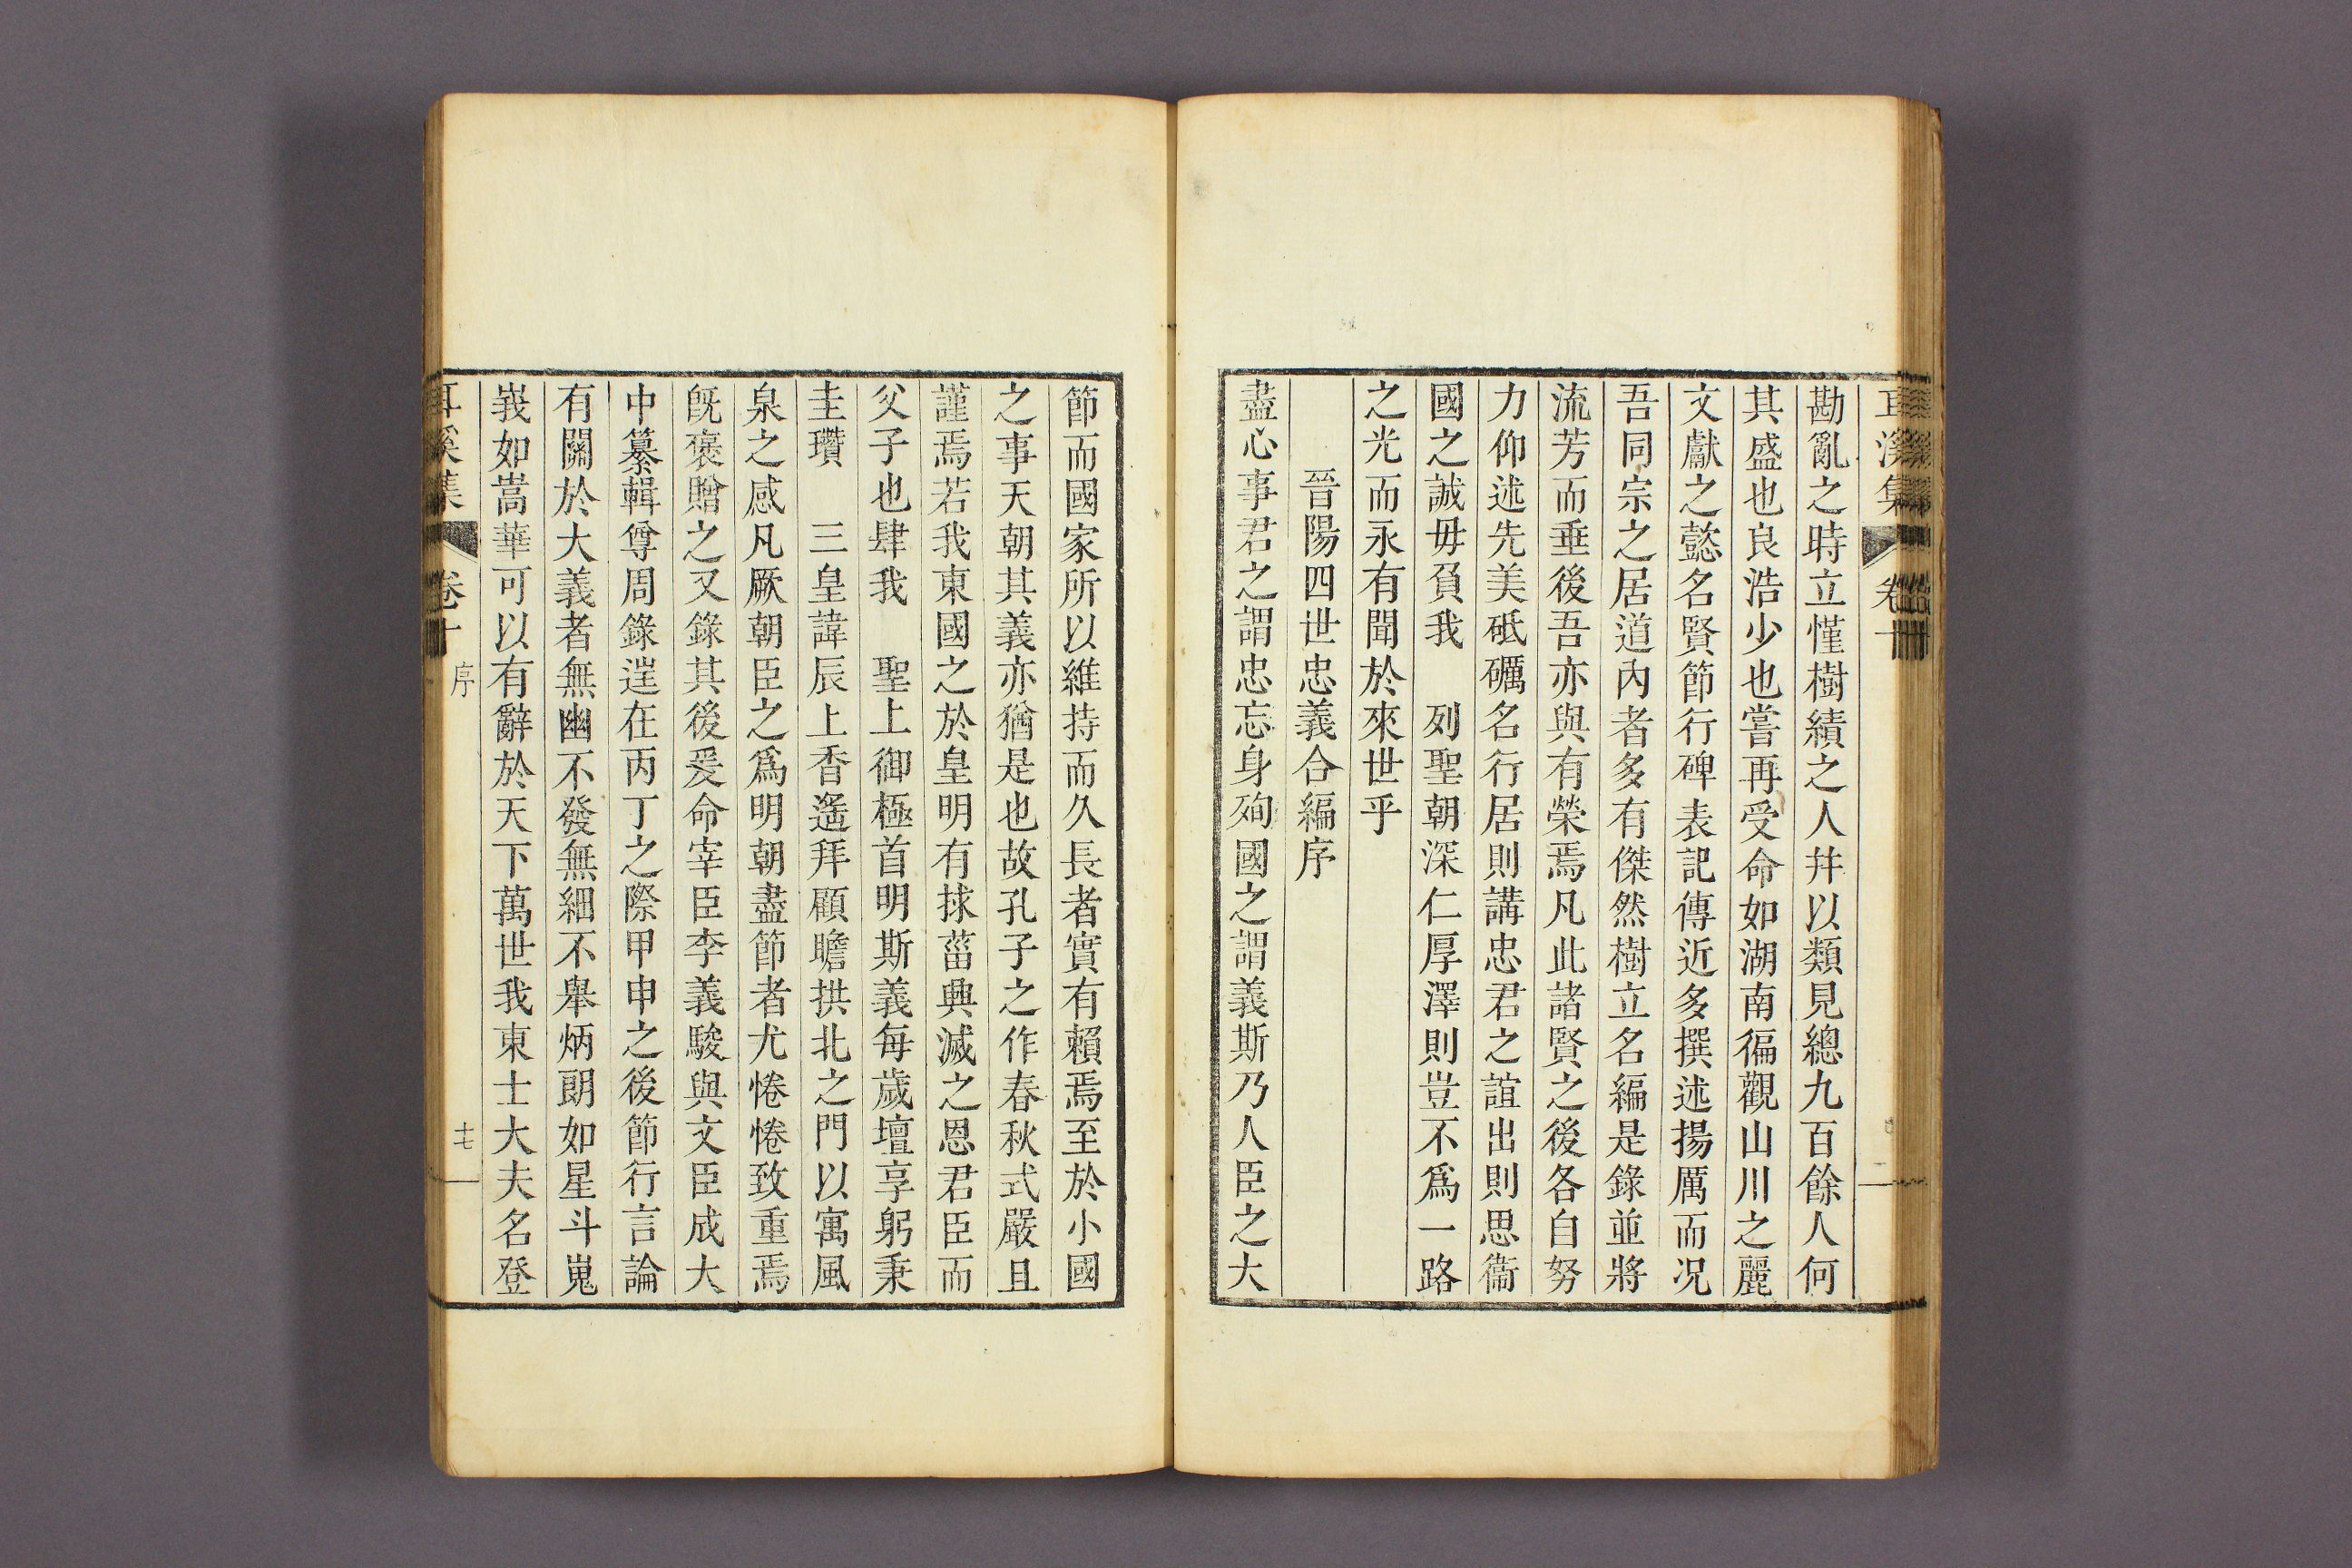 耳溪集 卷十
勘亂之時立慬樹績之人幷以類見總九百餘人何
其盛也良浩少也嘗再受命如湖南徧觀山川之麗
文獻之懿名賢節行碑表記傳近多撰述揚厲而况
吾同宗之居道內者多有傑然樹立名編是錄並將
流芳而垂後吾亦與有榮焉凡此諸賢之後各自努
力仰述先美砥礪名行居則講忠君之誼出則思衞
國之誠毋負我 列聖朝深仁厚澤則豈不爲一路
之光而永有聞於來世乎
晉陽四世忠義合編序
盡心事君之謂忠忘身殉國之謂義斯乃人臣之大
節而國家所以維持而久長者實有賴焉至於小國
之事天朝其義亦猶是也故孔子之作春秋式嚴且
謹焉若我東國之於皇明有捄菑興滅之恩君臣而
父子也肆我 聖上御極首明斯義每歲壇享躬秉
圭瓚 三皇諱辰上香遙拜顧瞻拱北之門以寓風
泉之感凡厥朝臣之爲明朝盡節者尤惓惓致重焉
旣褒贈之又錄其後爰命宰臣李義駿與文臣成大
中纂輯尊周錄逞在丙丁之際甲申之後節行言論
有關於大義者無幽不發無細不舉炳朗如星斗嵬
峩如嵩華可以有辭於天下萬世我東士大夫名登
耳溪集 卷十 序 十七